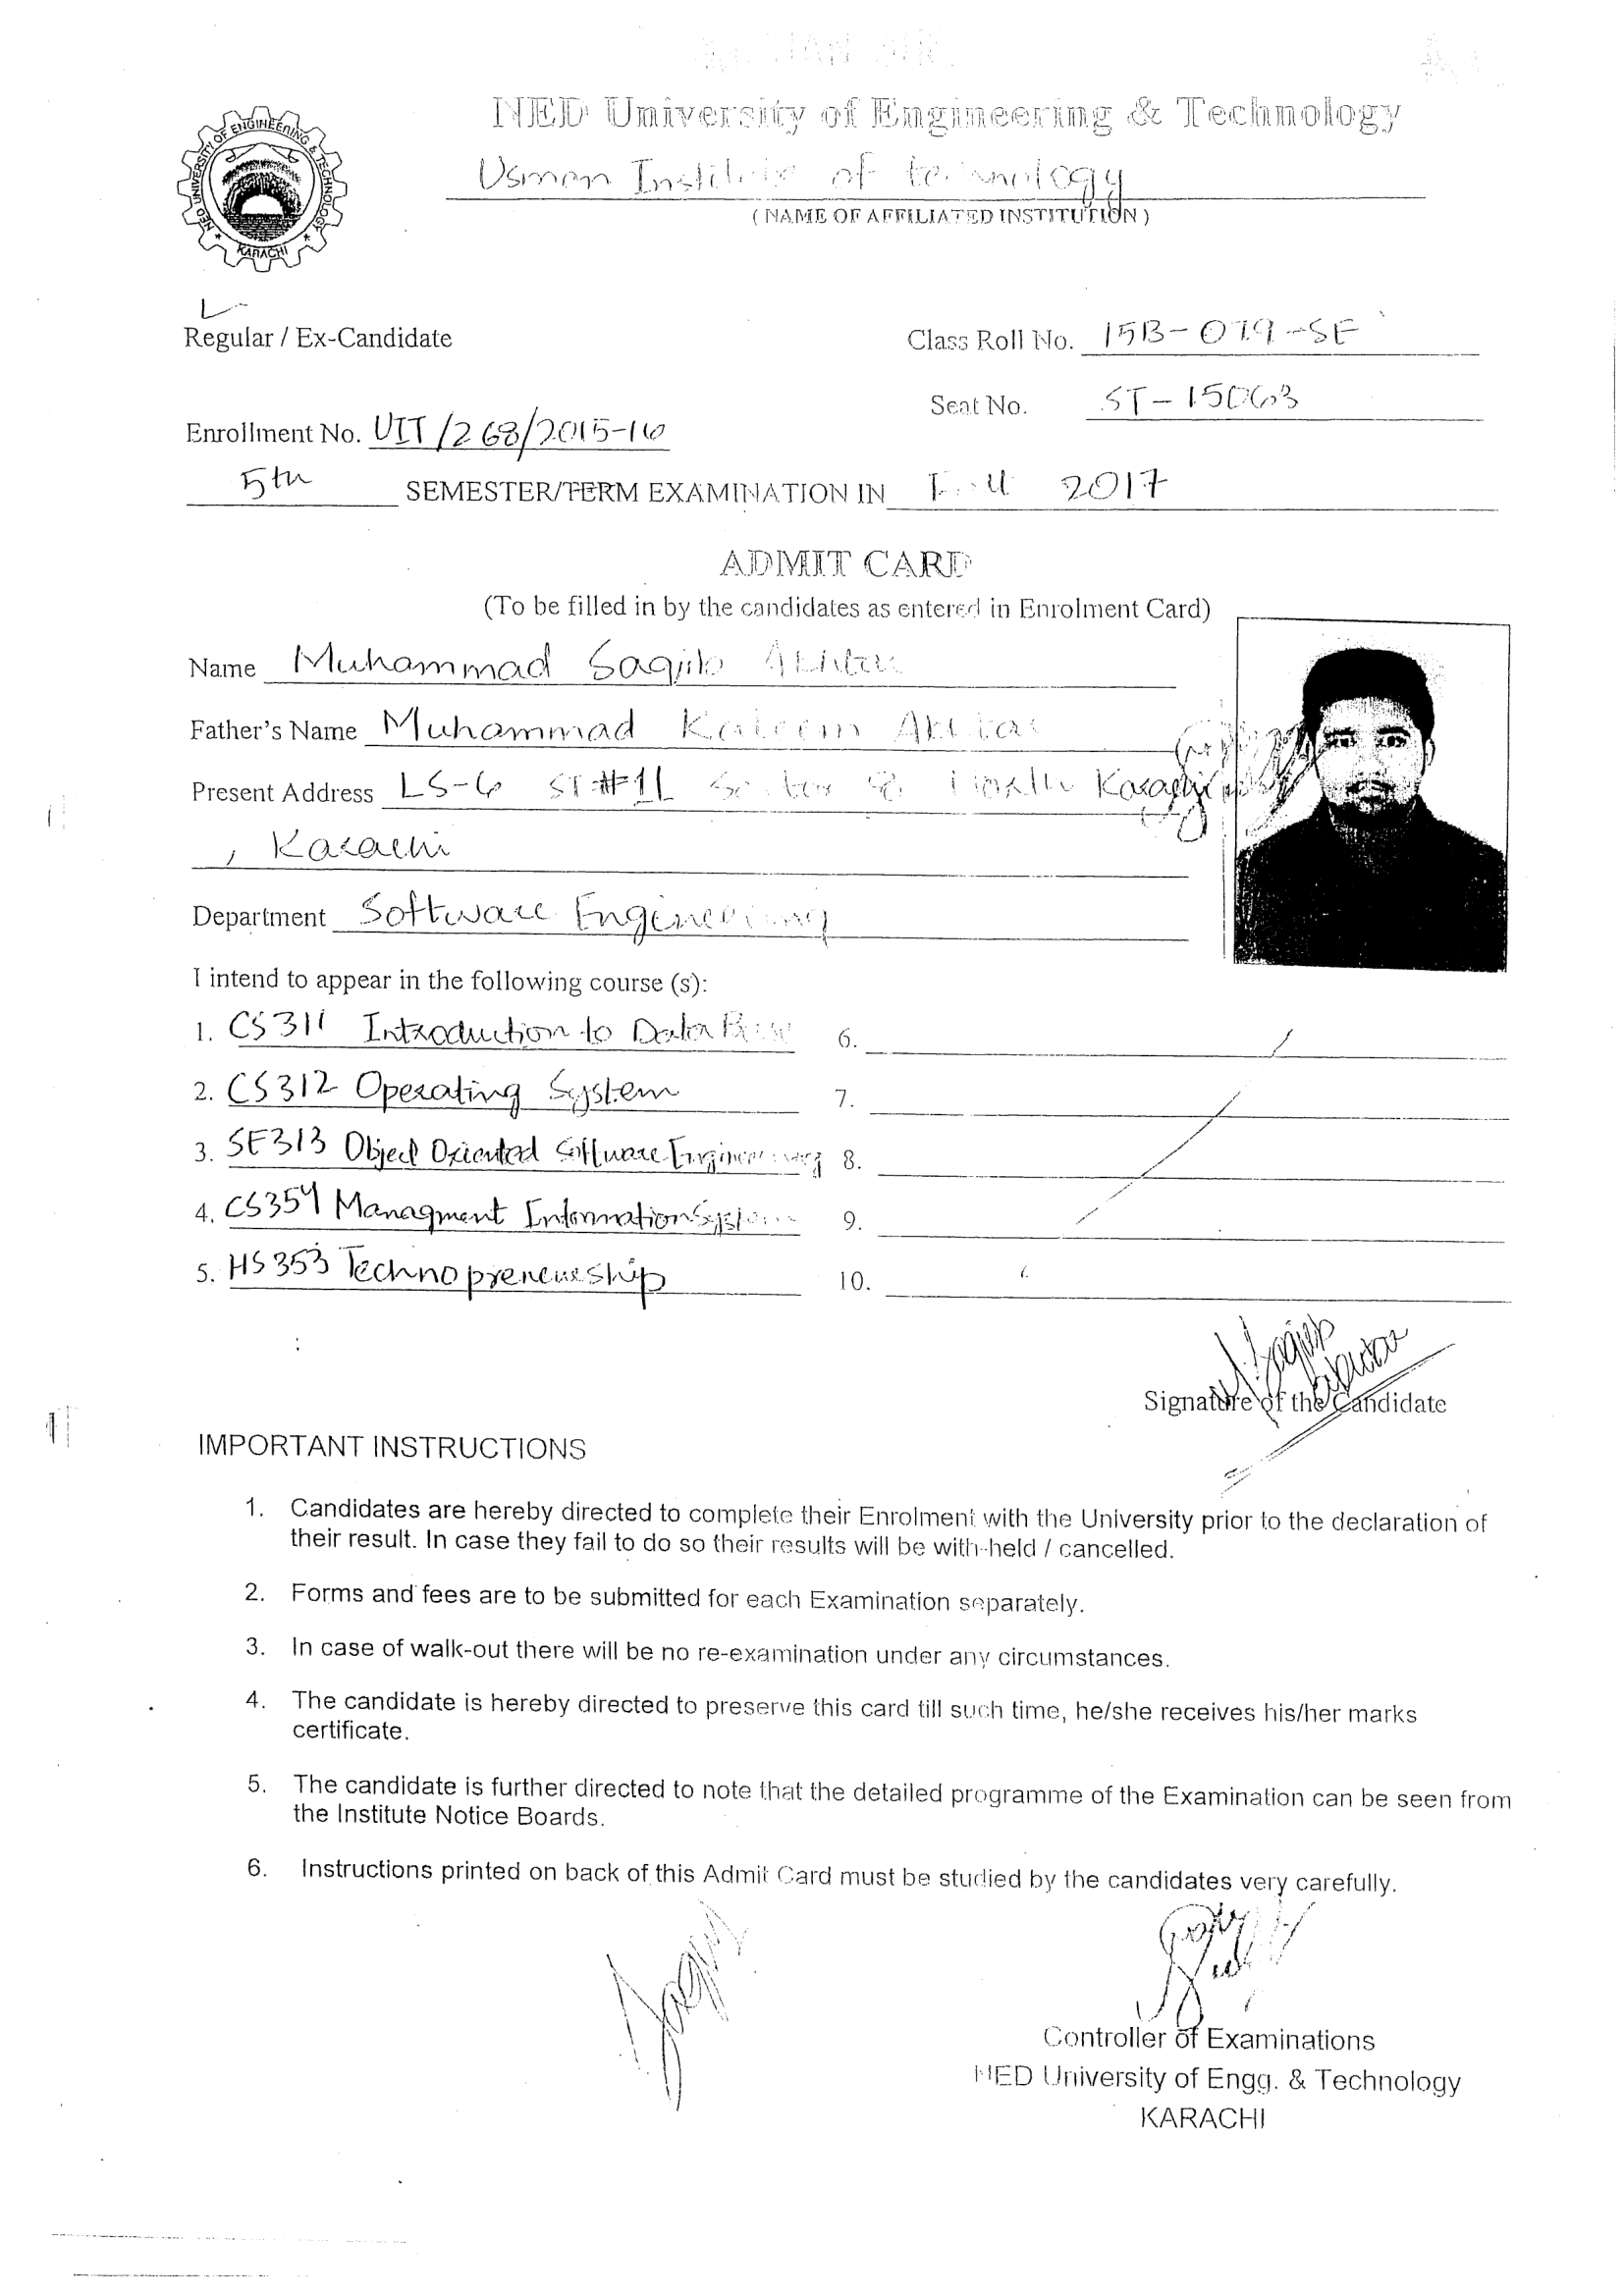 NED University of Engineering & Technology
Usman Institute of technology
( NAME OF AFFILIATED INSTITUTION )
NED UNIVERSITY OF ENGINEERING & TECHNOLOGY
KARACHI
Regular / Ex-Candidate
Class Roll No. 15B-079-SE
Seat No. ST-15063
Enrollment No. UIT/268/2015-16
5th SEMESTER/TERM EXAMINATION IN Fall 2017
ADMIT CARD
(To be filled in by the candidates as entered in Enrolment Card)
Name Muhammad Saqib Akhtar
Father's Name Muhammad Kaleem Akhtar
Present Address LS-6 ST#11 Sector North Karachi
, Karachi
Department Software Engineering
I intend to appear in the following course (s):
1. CS311 Introduction to Data Base 6.
2. CS312 Operating System 7.
3. SE313 Object Oriented Software Engineering 8.
4. CS354 Managment Information System 9.
5. HS353 Technopreneuship 10.
M.Saqib
Akhtar
Signature of the Candidate
IMPORTANT INSTRUCTIONS
1. Candidates are hereby directed to complete their Enrolment with the University prior to the declaration of
their result. In case they fail to do so their results will be with-held / cancelled.
2. Forms and fees are to be submitted for each Examination separately.
3. In case of walk-out there will be no re-examination under any circumstances.
4. The candidate is hereby directed to preserve this card till such time, he/she receives his/her marks
certificate.
5. The candidate is further directed to note that the detailed programme of the Examination can be seen from
the Institute Notice Boards.
6. Instructions printed on back of this Admit Card must be studied by the candidates very carefully.
Controller of Examinations
NED University of Engg. & Technology
KARACHI